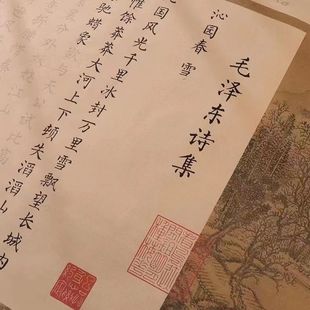 毛泽东诗集
沁园春 雪
国风光千里冰封万里雪飘望长城内
惟馀莽莽大河上下顿失滔滔山
驰蜡象